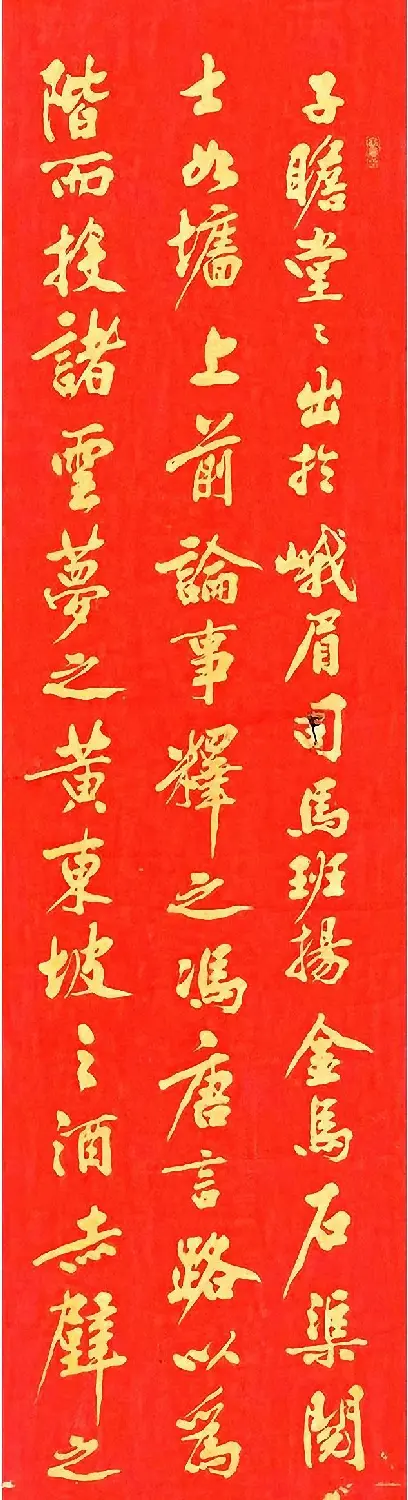 子瞻堂〻出於峨眉司馬班揚金馬石渠閱
士如墻上前論事釋之馮唐言路以爲
階而投諸雲夢之黄東坡之酒赤壁之